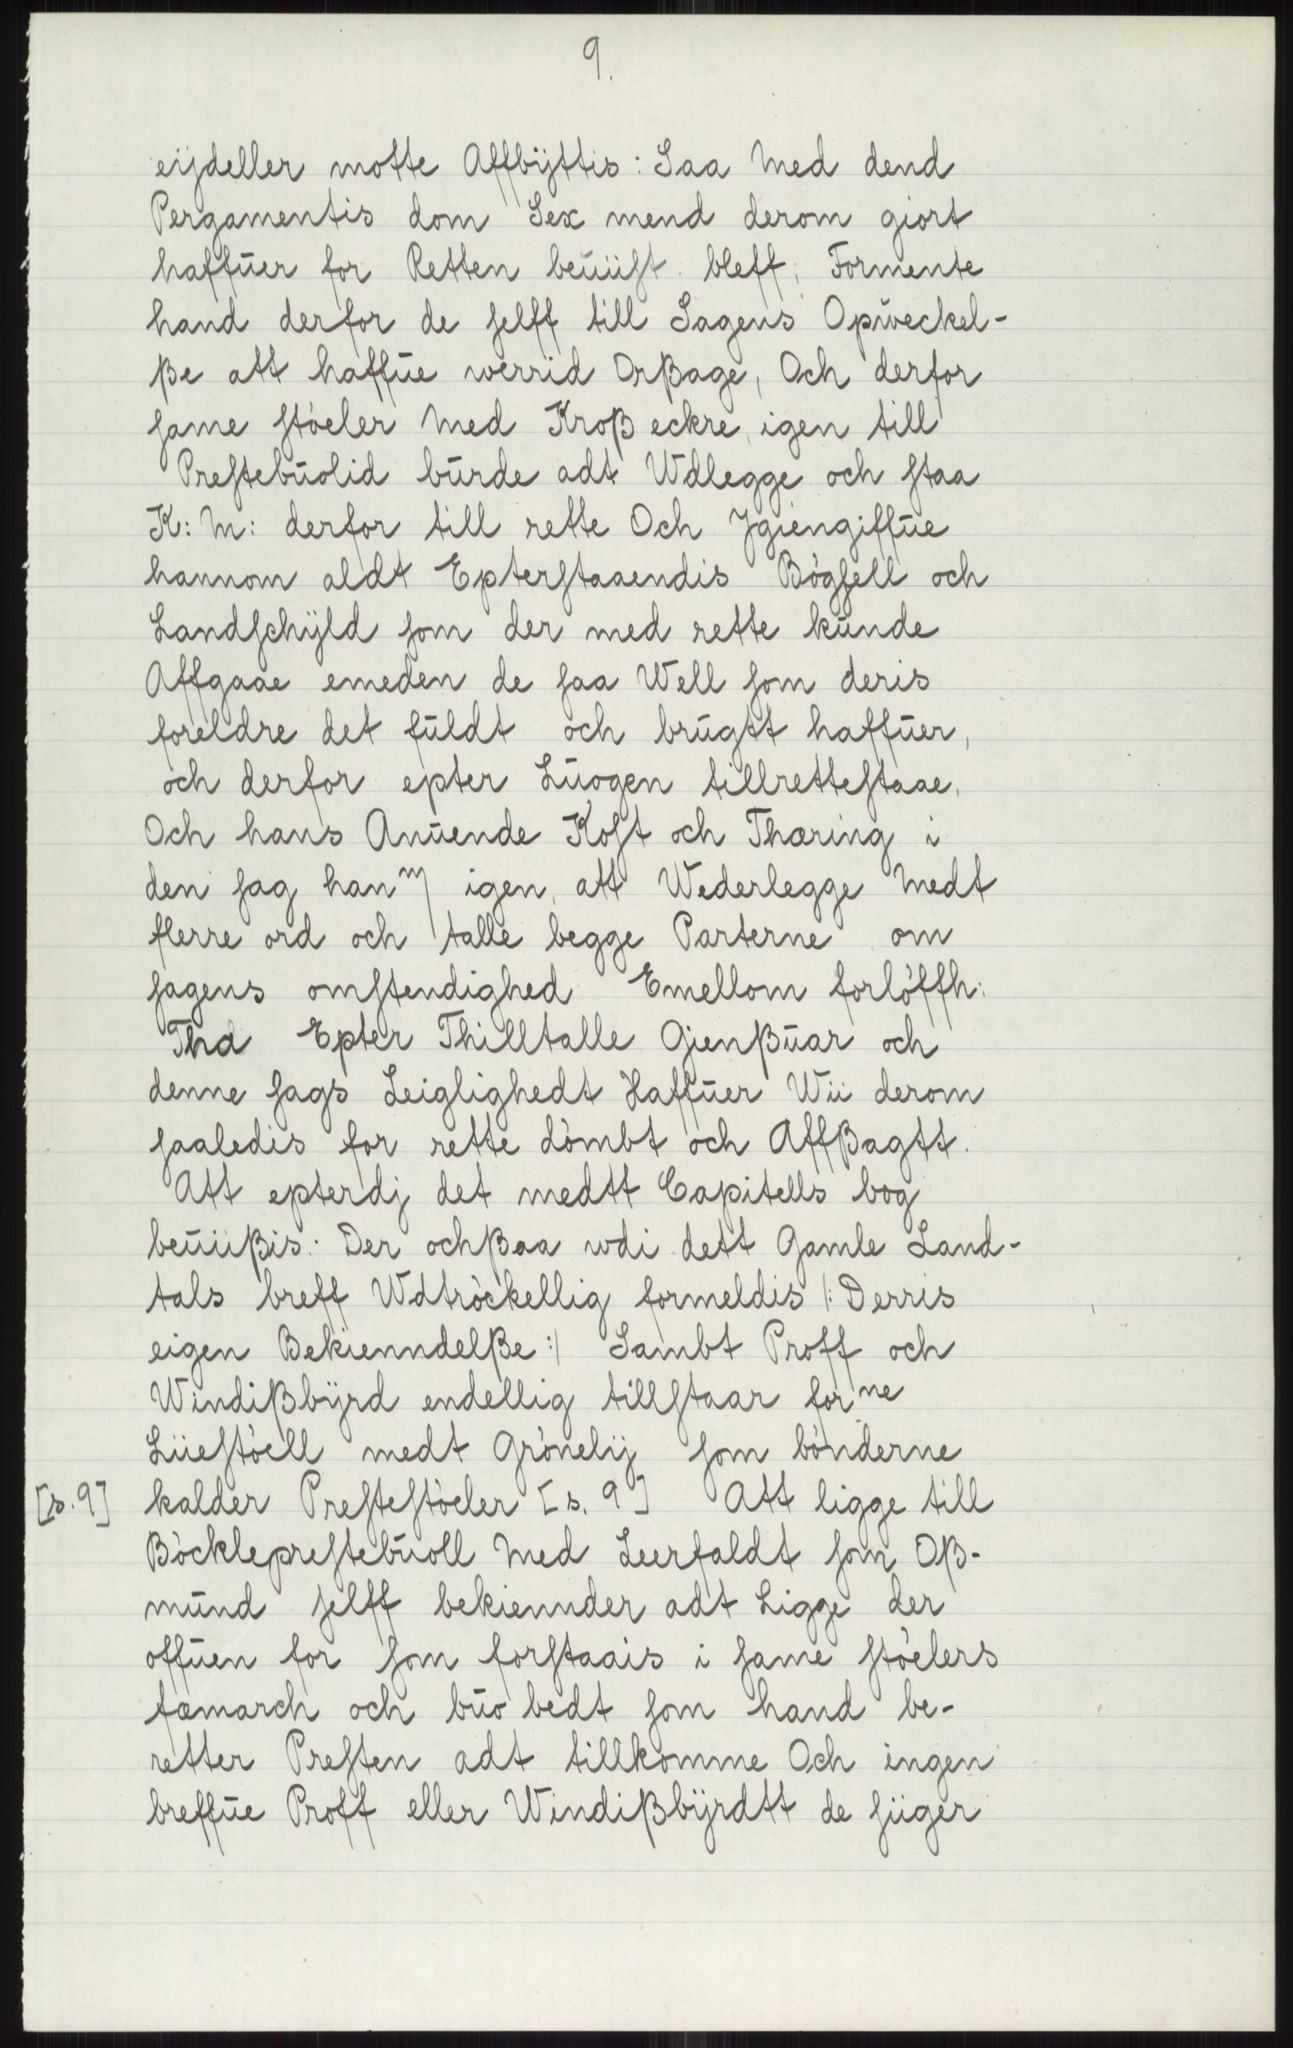 9.
eijdeller motte Affbÿttis: Saa Med dend
Pergamentis dom Sex mend derom giort
haffuer for Retten beuüst bleff, Formente
hand derfor de selff till Sagens Opweckel-
ße att haffue werrid Orßage, Och derfor
same støeler Med Kroß eckre, igen till
Prestebuolid burde adt Wdlegge och staa
K: M: derfor till rette Och Ygiengiffue
hannom aldt Epterstaaendis Bögsell och
Landschÿld som der med rette kunde
Affgaae emeden de saa Well som deris
foreldre det fuldt och brugtt haffuer,
och derfor epter Luogen tillrettestaae,
Och hans Anuende Kost och Thæring i
den sag hanm igen, att Wederlegge Medt
flerre ord och talle begge Parterne om
sagens omstendighed Emellom forlöffh:
Tha Epter Thilltalle Gienßuar och
denne sags Leiglighedt Haffuer Wii derom
saaledis for rette dömbt och Affßagtt.
Att epterdj det medtt Capitells bog
beuiißis: Der ochßaa wdi dett Gamle Land-
tals breff Wdtröckellig formeldis /: Derris
eigen Bekienndelße :/ Sambt Proff och
Windißbÿrd endellig tillstaar forne
Lüestöell medt Grönelij som bönderne
[s. 9] kalder Prestestöeler [s. 9] Att ligge till
Böckleprestebuoll Med Leerfaldt som Oß-
mund selff bekiennder adt Ligge der
offuen for som forstaais i same stöelers
fæmarch och buo bedt som hand be-
retter Presten adt tillkomme Och ingen
breffue Proff eller Windißbÿrdtt de siiger